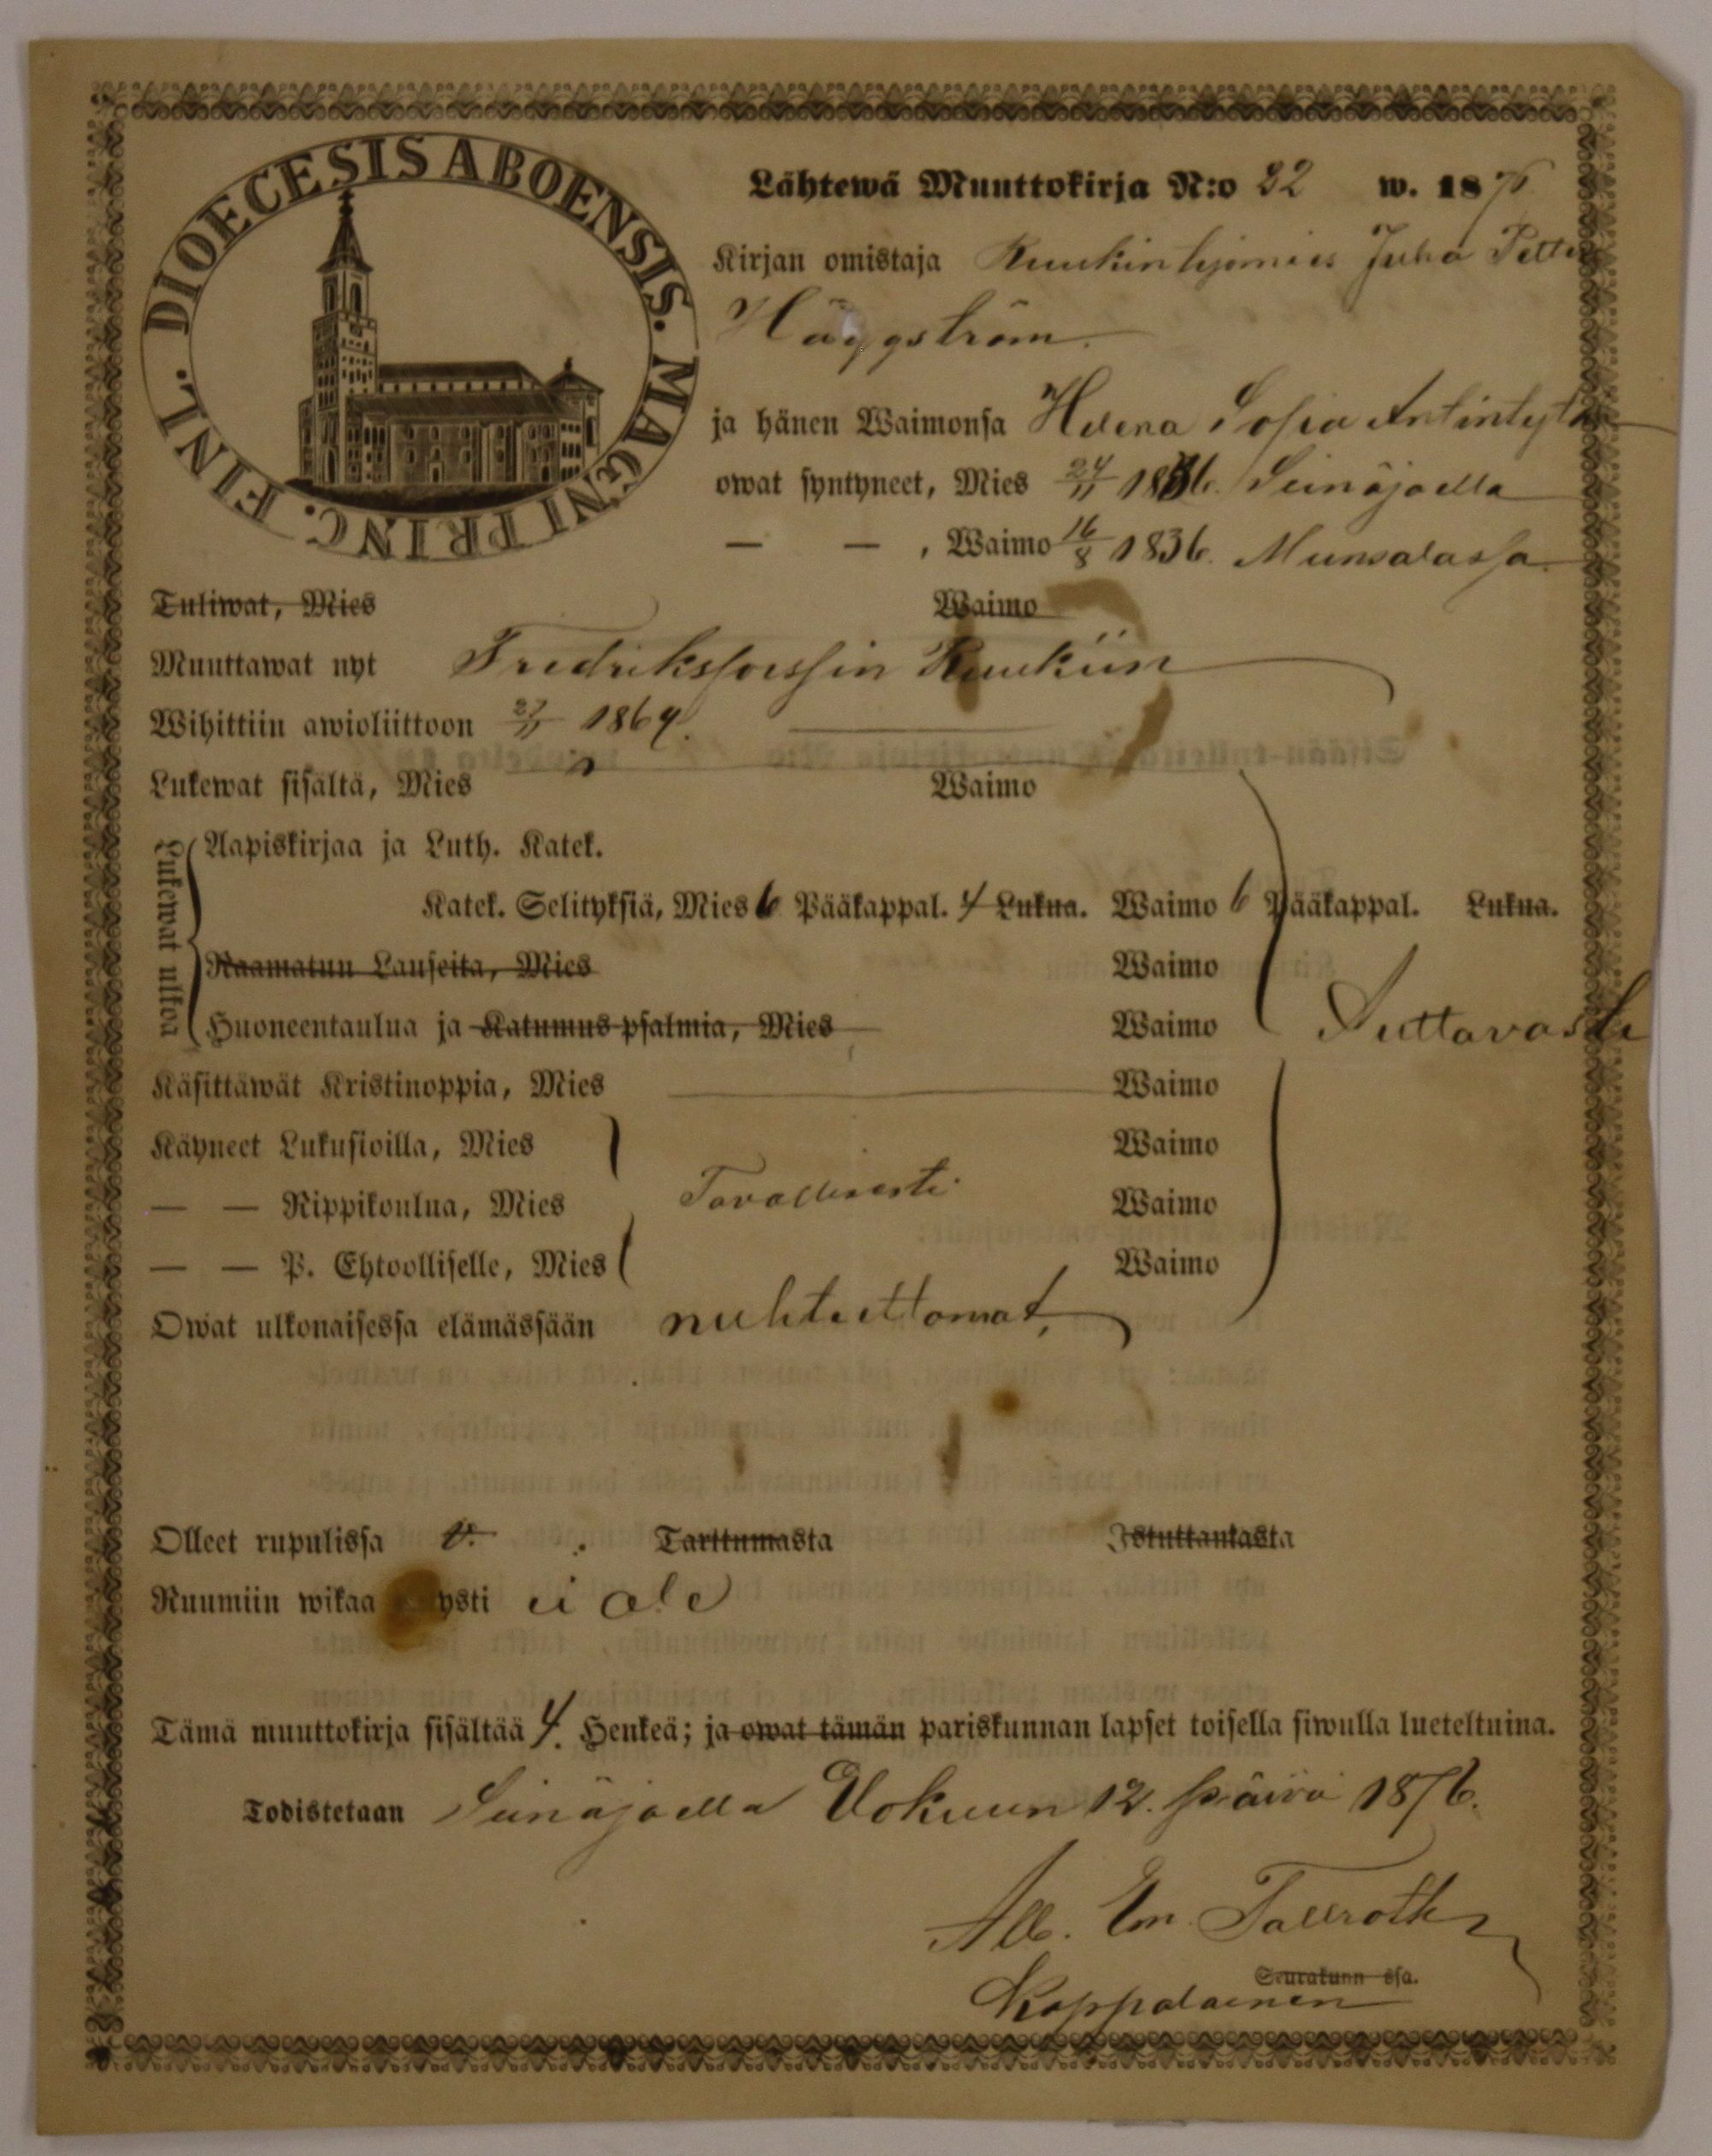 DIOECESIS ABOENSIS. MAGNI PRINC. FINL.
Lähtewä Muuttokirja N:o 32 w. 1876
Kirjan omistaja Ruukintyömies Juha Petter
Häggström.
ja hänen Waimonsa Helena Sofia Antintytär
owat syntyneet, Mies 24/11 1836. Seinäjoella
— — , Waimo 16/8 1836. Munsalassa.
Tuliwat, Mies Waimo
Muuttawat nyt Fredriksforssin Ruukiin
Wihittiin awioliittoon 27/11 1864.
Lukewat sisältä, Mies Waimo
Lukewat ulkoa
Aapiskirjaa ja Luth. Katek.
Katek. Selityksiä, Mies 6 Pääkappal. 4 Lukua. Waimo 6 Pääkappal. Lukua.
Raamatun Lauseita, Mies Waimo
Huoneentaulua ja Katumus-psalmia, Mies Waimo Auttavasti
Käsittäwät Kristinoppia, Mies Waimo
Käyneet Lukusioilla, Mies Waimo
— — Rippikoulua, Mies Tavallisesti Waimo
— — P. Ehtoolliselle, Mies Waimo
Owat ulkonaisessa elämässään nuhteettomat,
Olleet rupulissa Tarttumasta Istuttamasta
Ruumiin wikaa ysti ei ole
Tämä muuttokirja sisältää 4. Henkeä; ja owat tämän pariskunnan lapset toisella siwulla lueteltuina.
Todistetaan Seinäjoella Elokuun 12. päivä 1876.
Alb. Em. Tallroth
Seurakunn ssa.
Kappalainen